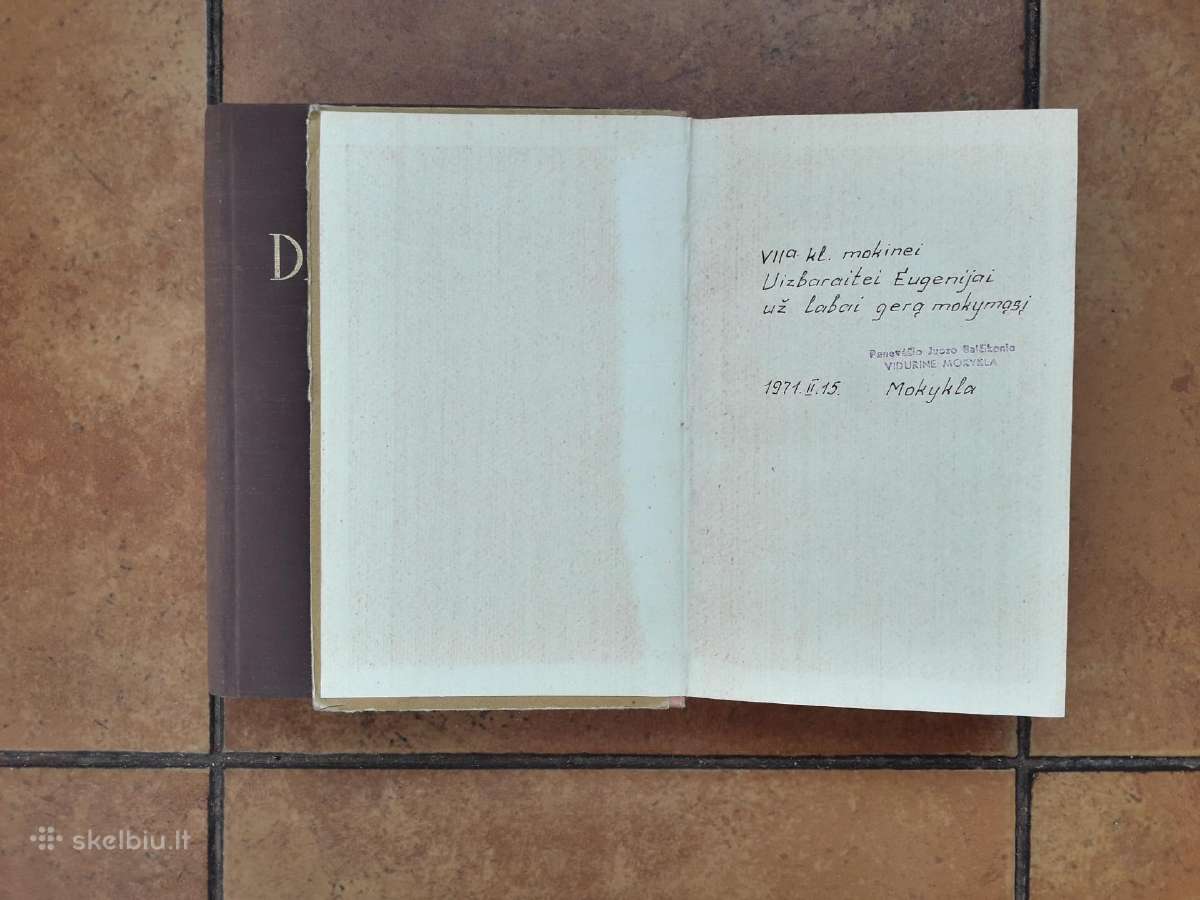 D
VIIa kl. mokinei
Vizbaraitei Eugenijai
už labai gerą mokymąsį
Panevėžio Juozo Balčikonio
VIDURINĖ MOKYKLA
1971.II.15. Mokykla
skelbiu.lt